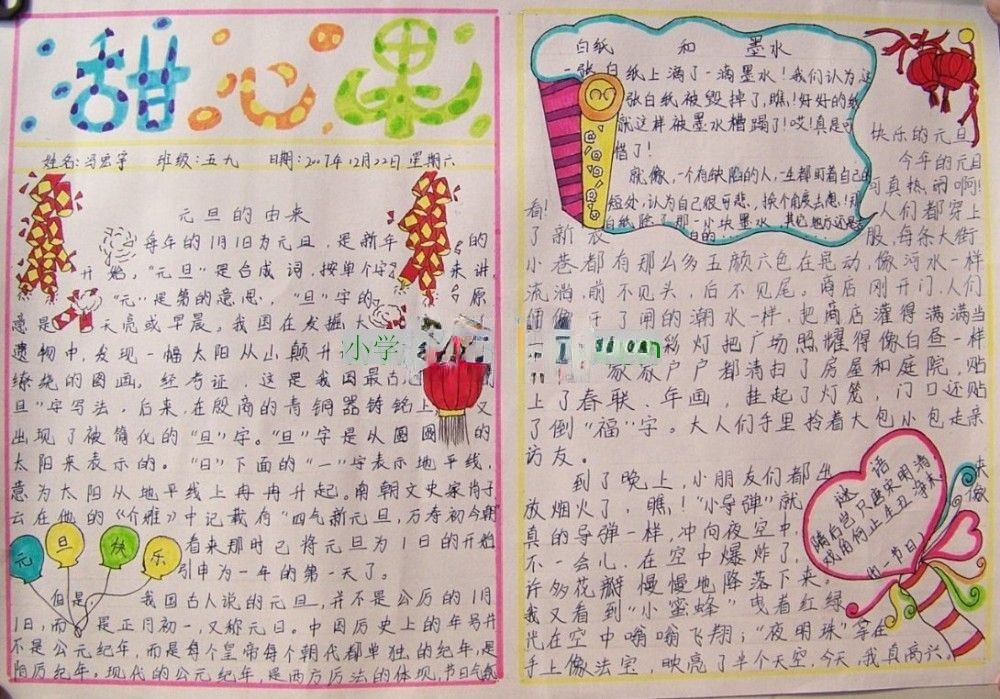 甜心果
姓名:冯宏宇 班级:五九 日期:2007年12月22日 星期六
元旦的由来
每年的1月1日为元旦,是新年的
开始,"元旦"是合成词,按单个字来讲,
"元"是第的意思,"旦"字的原
意是天亮或早晨。我国在发掘大
遗物中,发现一幅太阳从山颠升
缭绕的图画。经考证,这是我国最古
旦"字写法,后来,在殷商的青铜器铸铭上又
出现了被简化的"旦"字。"旦"字是从圆圆的
太阳来表示的。"日"下面的"一"字表示地平线,
意为太阳从地平线上冉冉升起。南朝文史家肖子
云在他的《介雅》中记载有"四气新元旦,万寿初今朝
看来那时已将元旦为1日的开始
引申为一年的第一天了。
元旦快乐
但是,我国古人说的元旦,并不是公历的1月
1日,而是正月初一,又称元日。中国历史上的年号并
不是公元纪年,而是每个皇帝每个朝代都单独的纪年,是
阴历纪年。现代的公元纪年,是西方历法的体现,节日气氛
小学
白纸和墨水
一张白纸上滴了一滴墨水!我们认为这
张白纸被毁掉了,瞧!好好的纸
就这样被墨水糟蹋了!哎!真是可
惜了!
就像,一个有缺陷的人,一生都盯着自己的
短处,认为自己很可悲,换个角度去想!
白纸除了那一小块墨水,其它地方还是
白的
快乐的元旦
今年的元旦
可真热闹啊!
看!人们都穿上
了新衣服,每条大街
小巷都有那么多五颜六色在晃动,像河水一样
流淌,前不见头,后不见尾。商店刚开门,人们
便像开了闸的潮水一样,把商店灌得满满当
彩灯把广场照耀得像白昼一样
家家户户都清扫了房屋和庭院,贴
上了春联、年画,挂起了灯笼,门口还贴
了倒"福"字。大人们手里拎着大包小包走亲
访友。
到了晚上,小朋友们都出
放烟火了,瞧!"小导弹"就像
真的导弹一样,冲向夜空中,
不一会儿,在空中爆炸了,
许多花瓣慢慢地降落下来。
我又看到"小蜜蜂"曳着红绿
光在空中嗡嗡飞翔;"夜明珠"拿在
手上像法宝,映亮了半个天空,今天,我真高兴。
谜语